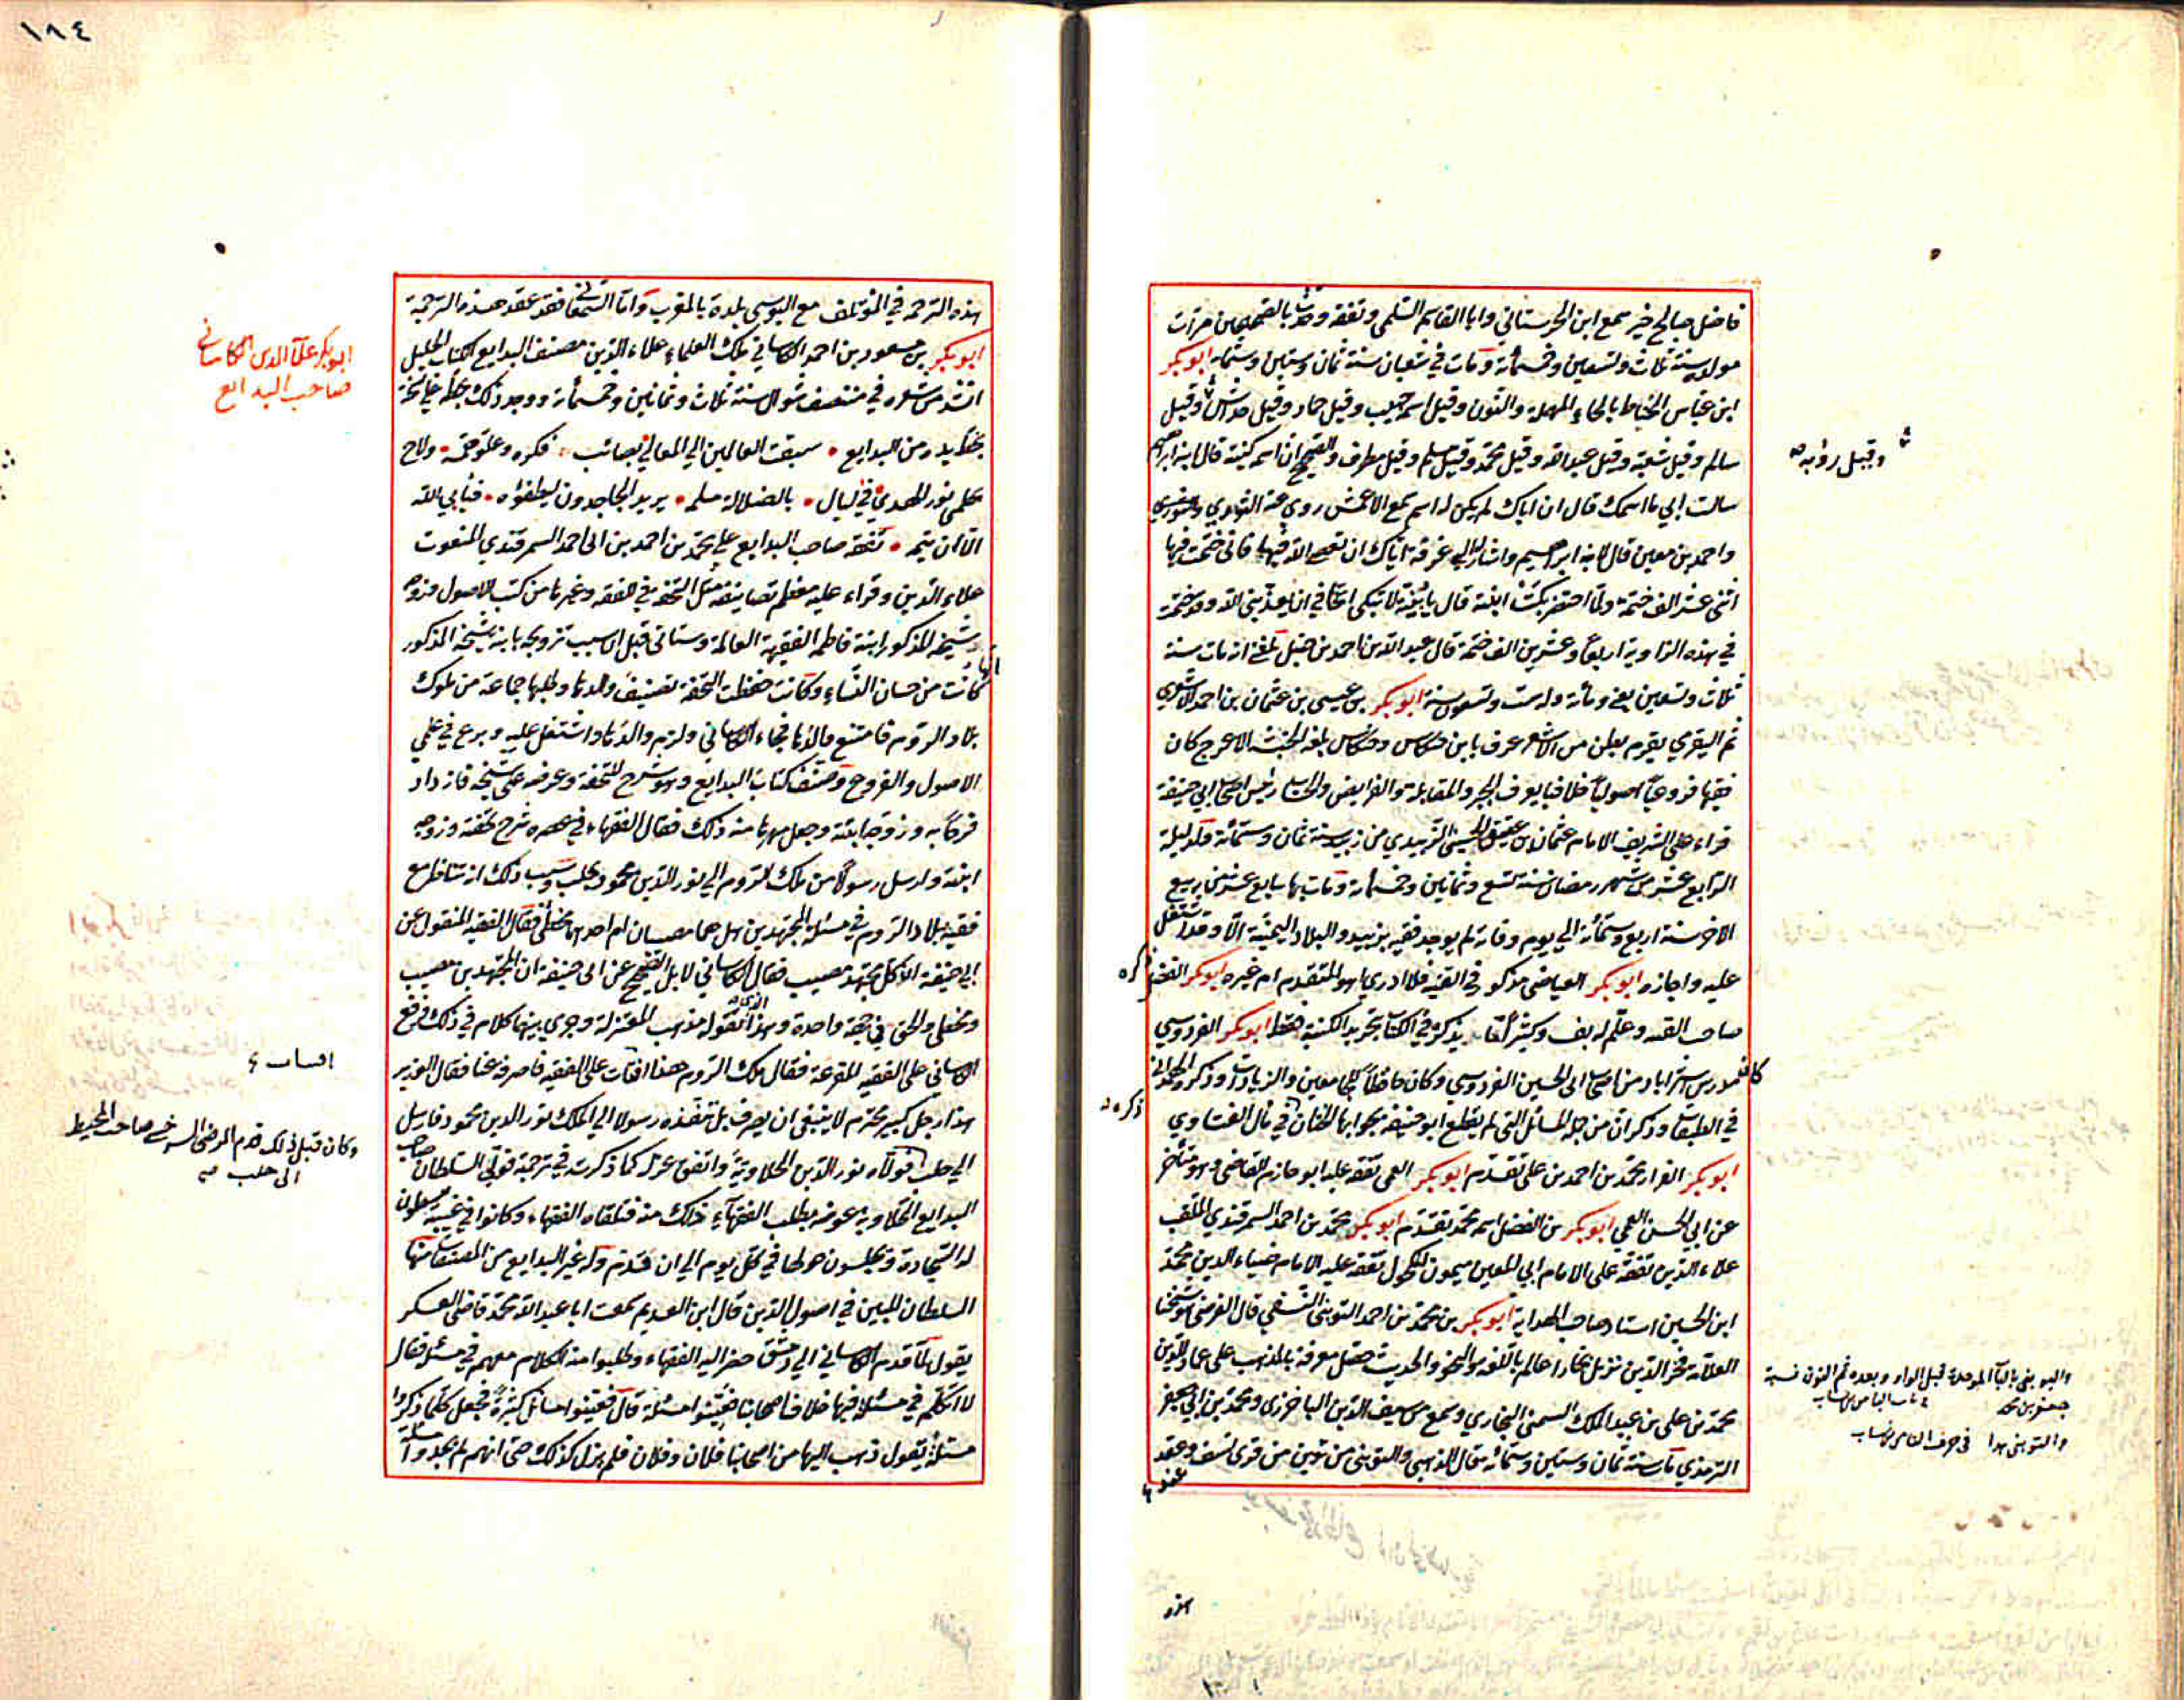 فاضل صالح خير سمع ابن الحرستاني وابا القاسم السلمي وتفقه وحدث بالصحيحين مرات
مولده سنة ثلاث وتسعين وخمسمائة ومات في شعبان سنة ثمان وستين وستمائة ابو بكر
ابن عياش الخياط بالحاء المهملة والنون وقيل اسمه حبيب وقيل حماد وقيل خداش وقيل
سالم وقيل شعبة وقيل عبد الله وقيل محمد وقيل مسلم وقيل مطرف والصحيح ان اسمه كنيته قال ابنه ابراهيم
وقيل رؤبه صح
سالت ابي ما اسمك قال ان اباك لم يكن له اسم سمع الاعمش روى عنه الثوري
واحمد بن معين قال لابنه ابراهيم واشار الى غرفة اياك ان تعصي الله فيها فاني ختمت فيها
اثنى عشر الف ختمة ولما احتضر بكت ابنته قال يا بنية لا تبكي اتخافي ان يعذبني الله وقد ختمت
في هذه الزاوية اربعا وعشرين الف ختمة قال عبد الله بن احمد بن حنبل بلغني انه مات سنة
ثلاث وتسعين يعني ومائة وله ست وتسعون سنة ابو بكر بن عيسى بن عثمان بن احمد الاشعري
ثم اليقرمي يقرم بطن من الاشعر عرف بابن حنكاس وحنكاس بلغة الحبشة الاعرج كان
فقيها فروعيا اصوليا خلافيا يعرف الجبر والمقابلة والفرايض والحساب رئيس اصحاب ابي حنيفة
قراء على الشريف الامام عثمان بن عتيق الحسيني الزبيدي من زبيد سنة ثمان وستمائة ولد ليلة
الرابع عشر من شهر رمضان سنة تسع وثمانين وخمسمائة ومات بها سابع عشرين ربيع
الاخر سنة اربع وستمائة الى يوم وفاته لم يوجد فقيه بزبيد والبلاد اليمنية الا وقد اشتغل
عليه واجازه ابو بكر العياضي مذكور في القنية فلا ادري اهو المتقدم ام غيره ابو بكر الفضل
ذكره
صاحب القنية وعلم له بف وكثيرا ما يذكره في الكتاب بمجرد الكنية فقط ابو بكر الفردوسي
كان مدرس استراباد من اصحاب ابي الحسين الفردوسي وكان حافظا للجامعين والزيادات وذكره الهمداني
في الطبقات وذكر ان من جملة المسائل التي لم يقطع ابو حنيفة بجوابها الختان في قال الغساوي
ذكره
ابو بكر القزاز محمد بن احمد بن علي تقدم ابو بكر القمي تفقه عليه ابو حازم القاضي وهو متأخر
عن ابي الحسن القمي ابو بكر بن الفضل اسمه محمد تقدم ابو بكر محمد بن احمد السمرقندي الملقب
علاء الدين تفقه على الامام ابي المعين ميمون المكحول تفقه عليه الامام ضياء الدين محمد
ابن الحسين استاد صاحب الهداية ابو بكر بن محمد بن احمد التوبني النسفي قال الفرضي هو شيخنا
العلامة فخر الدين نزيل بخارا عالم بالفقه والنحو والحديث حصل معرفة بالمذهب على عماد الدين
محمد بن علي بن عبد الملك السمني البخاري وسمع من سيف الدين الباخرزي ومحمد بن ابي جعفر
الترمذي مات سنة ثمان وستين وستمائة قال الذهبي والتوبني من توبن من قرى نسف وعقد
والبوبني بالبآ الموحدة قبل الواو وبعده ثم النون نسبة
جعفر بن محمد
والتوبني هذا في حرف التاء من الانساب
هذه
١٨٤
هذه الترجمة في المؤتلف مع البوسي بلدة بالمغرب واما السمعاني فقد عقد هذه الترجمة
ابو بكر بن مسعود بن احمد الكاساني ملك العلماء علاء الدين مصنف البدايع الكتاب الجليل
ابو بكر علآ الدين الكاساني
صاحب البدايع
انشد من شعره في منتصف شوال سنة ثلاث وثمانين وخمسمائة ووجد ذلك بخطه على نسخة
بخط يده من البدايع • سبقت العالمين الي المعالي بصائب • فكره وعلو همه • ولاح
بحلمي نور الهدي في ليال • بالضلالة مدلهمه • يريد الجاحدون ليطفؤه • فيأبي الله
الا ان يتمه • تفقه صاحب البدايع علي محمد بن احمد بن ابي احمد السمرقندي المنعوت
علاء الدين وقراء عليه معظم تصانيفه مثل التحفة في الفقه وغيرها من كتب الاصول وزوجه
شيخه المذكور ابنته فاطمة الفقيهة العالمة وستاتي قيل ان سبب تزويجه بابنة شيخه المذكور
انها كانت من حسان النساء وكانت حفظت التحفة تصنيف والدها وطلبها جماعة من ملوك
بلاد الروم فامتنع والدها فجاء الكاساني ولزم والدها واشتغل عليه وبرع في علمي
الاصول والفروع وصنف كتاب البدايع وهو شرح للتحفة وعرضه على شيخه فازداد
فرحا به وزوجه ابنته وجعل مهرها منه ذلك فقال الفقهاء في عصره شرح تحفته وزوجه
ابنته وارسل رسولا من ملك الروم الي نور الدين محمود بحلب وسبب ذلك انه تناظر مع
فقيه ببلاد الروم في مسئلة المجتهدين هل هما مصيبان ام احدهما مخطئ فقال الفقيه المنقول عن
ابي حنيفة ان كل مجتهد مصيب فقال الكاساني لا بل الصحيح عن ابي حنيفة ان المجتهدين مصيب
ومخطئ والحق في جهة واحدة وهذا الذي تقوله مذهب المعتزلة وجرى بينهما كلام في ذلك فرفع
الكاساني على الفقيه المقرعة فقال ملك الروم هذا افتات على الفقيه فاصرفه عنا فقال الوزير
هذا رجل كبير محترم لا ينبغي ان يصرف بل تنفذه رسولا الي الملك نور الدين محمود فارسل
الي حلب فولاه نور الدين الحلاوية واتفق عزل كما ذكرته في ترجمة فولي السلطان صاحب
وكان قبل ذلك قدم الرضى السرخسي صاحب المحيط
الى حلب صح
البدايع الحلاوية عوضه بطلب الفقهآء ذلك منه فتلقاه الفقهاء وكانوا في غيبته يبسطون
له السجادة ويجلسون حولها في كل يوم الي ان قدم وله غير البدايع من المصنفات منها
السلطان المبين في اصول الدين قال ابن العديم سمعت ابا عبد الله محمد قاضي العسكر
يقول لما قدم الكاساني الي دمشق حضر اليه الفقهاء وطلبوا منه الكلام معهم في مسئلة فقال
لا اتكلم في مسئلة فيها خلاف اصحابنا فعينوا مسئلة قال فعينوا مسائل كثيرة فجعل كلما ذكروا
مسئلة يقول ذهب اليها من اصحابنا فلان وفلان فلم يزل كذلك حتى انهم لم يجدوا مسئلة